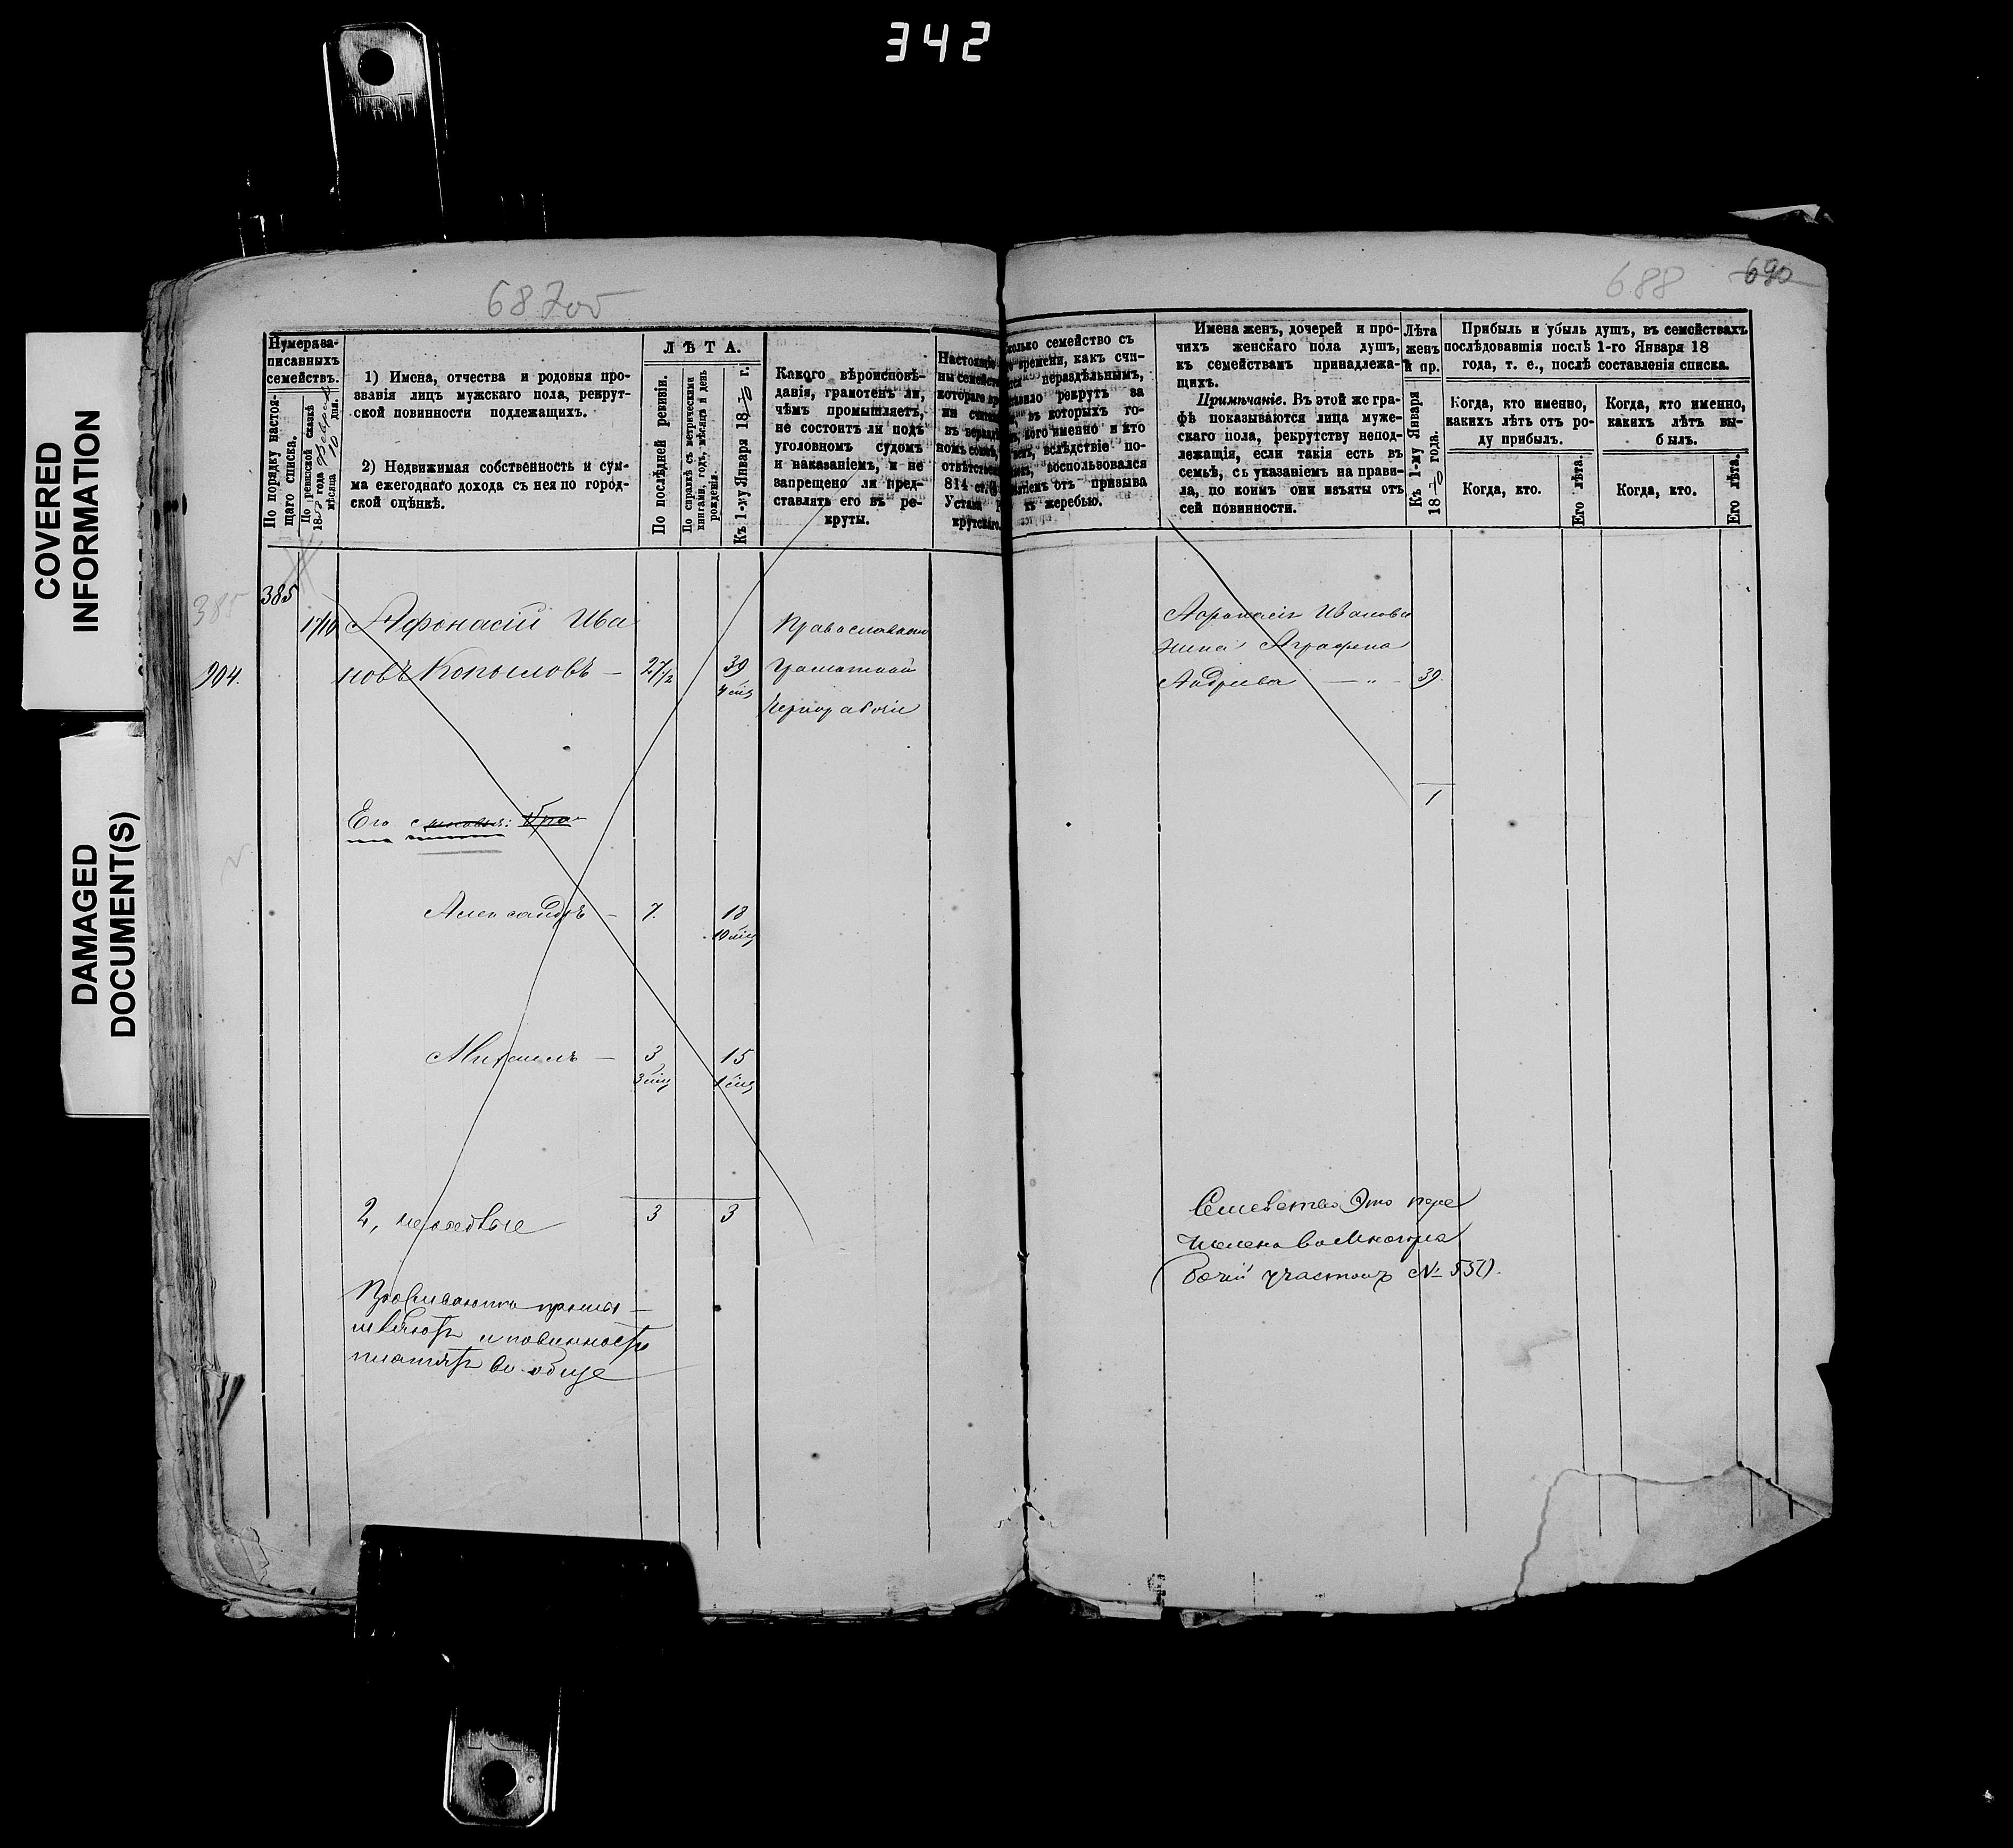 342
COVERED
INFORMATION
DAMAGED
DOCUMENT(S)
687об
688 690
Нумера за-
писанныхъ
семействъ.
По порядку настоя-
щаго списка.
По ревизской сказкѣ
18 года
мѣсяца 10 дня.
1) Имена, отчества и родовыя про-
званія лицъ мужскаго пола, рекрут-
ской повинности подлежащихъ.
2) Недвижимая собственность и сум-
ма ежегоднаго дохода съ нея по город-
ской оцѣнкѣ.
ЛѢТА.
По послѣдней ревизіи.
По справкѣ съ метрическими
книгами, годъ, мѣсяцъ и день
рожденія.
Къ 1-му Января 1870 г.
Какого вѣроисповѣ-
данія, грамотенъ ли,
чѣмъ промышляетъ,
не состоитъ ли подъ
уголовнымъ судомъ
и наказаніемъ, и не
запрещено ли пред-
ставлять его въ ре-
круты.
Настоящіе
котораго
814 ст.
Устава
крутскаго.
семейство съ
времени, какъ счи-
нераздѣльнымъ,
рекрутъ за
въ которыхъ го-
кого именно и кто
вслѣдствіе по-
воспользовался
отъ призыва
жеребью.
Имена женъ, дочерей и про-
чихъ женскаго пола душъ,
къ семействамъ принадлежа-
щихъ.
Примѣчаніе. Въ этой же гра-
фѣ показываются лица муже-
скаго пола, рекрутству непод-
лежащія, если такія есть въ
семьѣ, съ указаніемъ на прави-
ла, по коимъ они изъяты отъ
сей повинности.
Лѣта
женъ
и пр.
Къ 1-му Января
1870 года.
Прибыль и убыль душъ, въ семействахъ
послѣдовавшія послѣ 1-го Января 18
года, т. е., послѣ составленія списка.
Когда, кто именно,
какихъ лѣтъ отъ ро-
ду прибылъ.
Когда, кто.
Его лѣта.
Когда, кто именно,
какихъ лѣтъ вы-
былъ.
Когда, кто.
Его лѣта.
385
385
994.
Афонасій Ива
новъ Копыловъ — 27/2 39
Православный
грамотный
Чернорабочій
Афонасія Иванова
жена Аграфена
Андреева — " — 39
1
Его сыновья:
Александръ — 7. 18
10 мѣц
Михаилъ — 3 15
3 мѣц
3 3
2, не имѣютъ
и повинность
платятъ во обще
Семейство Это пере
числено во Многора
бочій участокъ № 550.